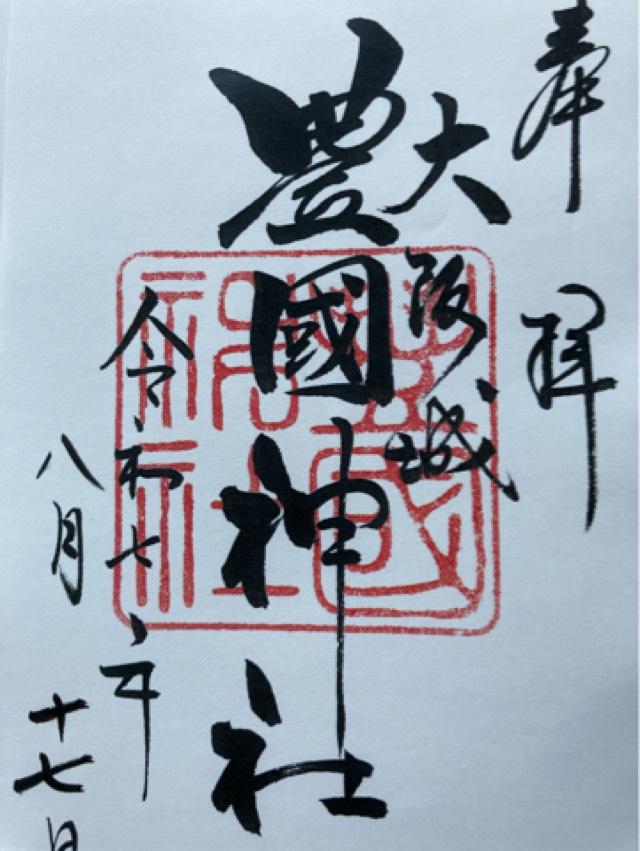 奉拝
大阪城
豊國神社
令和七年
八月十七日
豊國神社